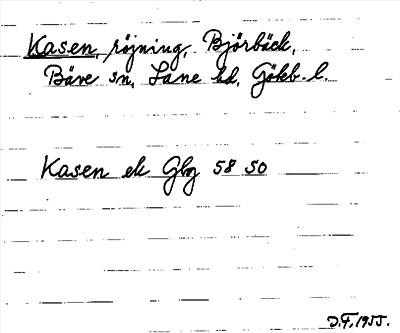 Kasen, röjning, Björbäck,
Bäve sn, Lane hd, Gökb. l.
Kasen ek Gbg 58 50
D.F. 1955.